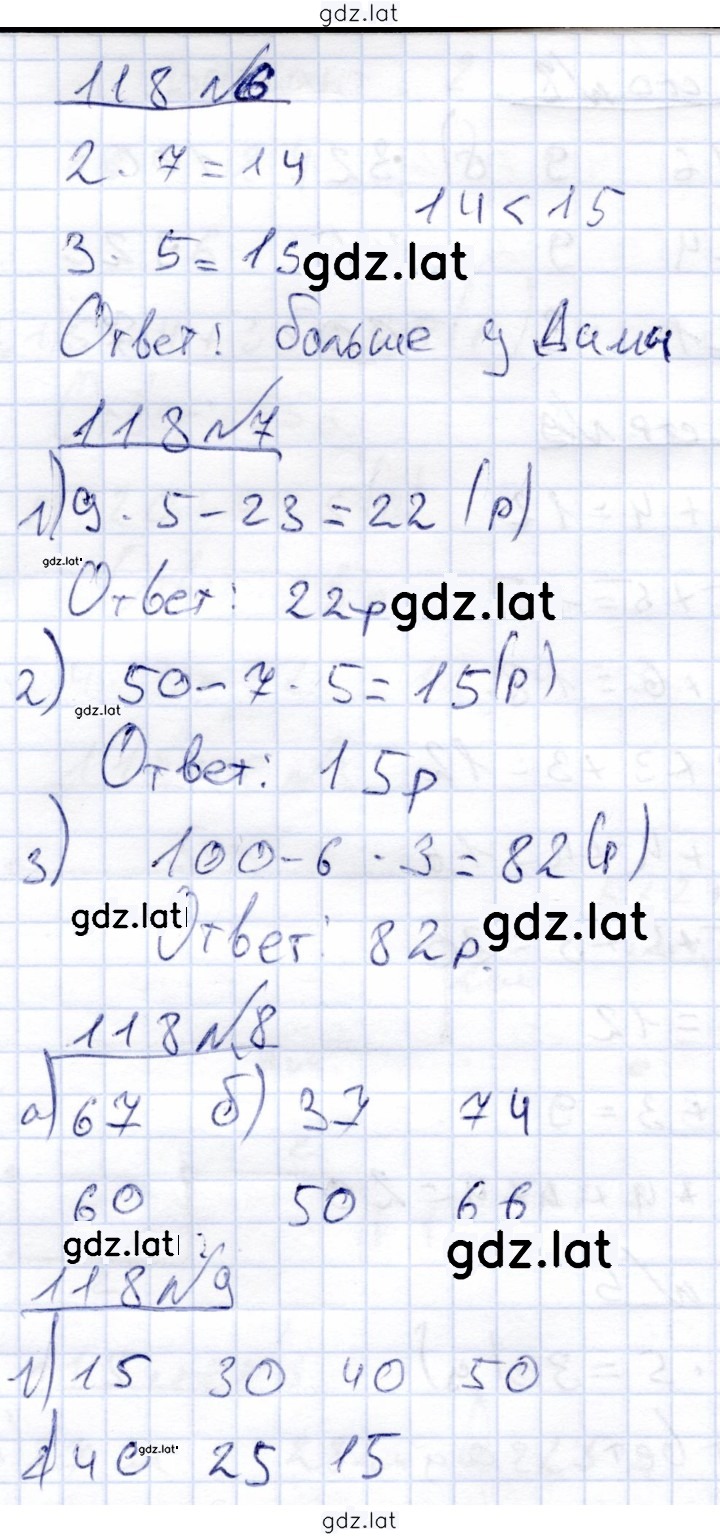 gdz.lat
118 №6
2 · 7 = 14
14 < 15
3 · 5 = 15 gdz.lat
Ответ: больше у Димы
118 №7
1) 9 · 5 – 23 = 22 (р)
gdz.lat
Ответ: 22р gdz.lat
2) 50 – 7 · 5 = 15 (р)
gdz.lat
Ответ: 15р
3) 100 – 6 · 3 = 82 (р)
gdz.lat gdz.lat
Ответ: 82р.
118 №8
а) 67 б) 37 74
60 50 66
gdz.lat gdz.lat
118 №9
1) 15 30 40 50
2) 40 gdz.lat 25 15
gdz.lat